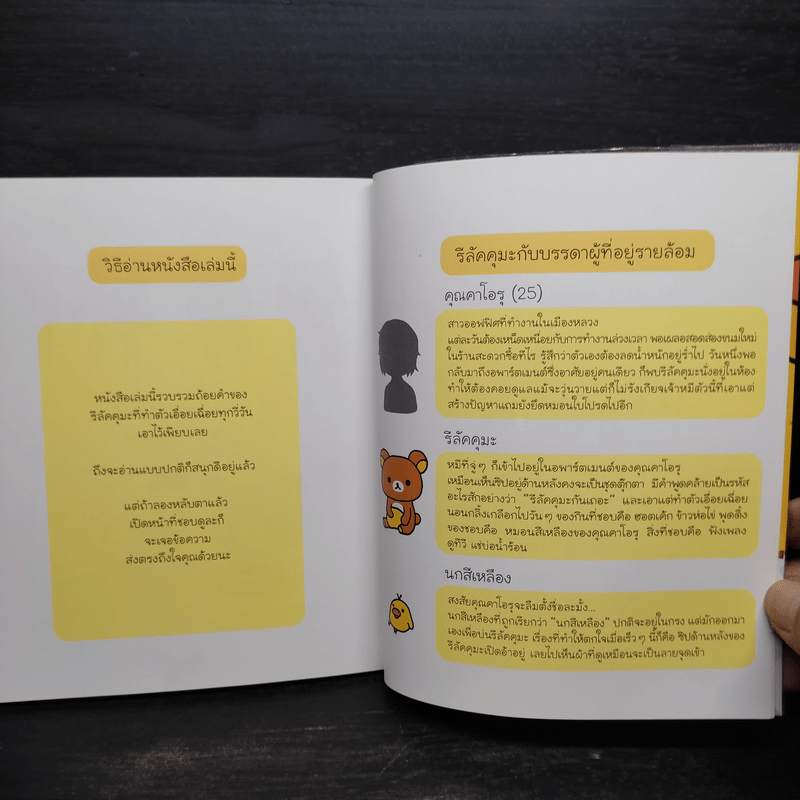 วิธีอ่านหนังสือเล่มนี้
หนังสือเล่มนี้รวบรวมถ้อยคำของ
รีลัคคุมะที่ทำตัวเอื่อยเฉื่อยทุกวี่วัน
เอาไว้เพียบเลย
ถึงจะอ่านแบบปกติก็สนุกดีอยู่แล้ว
แต่ถ้าลองหลับตาแล้ว
เปิดหน้าที่ชอบดูละก็
จะเจอข้อความ
ส่งตรงถึงใจคุณด้วยนะ
รีลัคคุมะกับบรรดาผู้ที่อยู่รายล้อม
คุณคาโอรุ (25)
สาวออฟฟิศที่ทำงานในเมืองหลวง
แต่ละวันต้องเหน็ดเหนื่อยกับการทำงานล่วงเวลา พอเผลอสอดส่องขนมใหม่
ในร้านสะดวกซื้อทีไร รู้สึกว่าตัวเองต้องลดน้ำหนักอยู่ร่ำไป วันหนึ่งพอ
กลับมาถึงอพาร์ตเมนต์ซึ่งอาศัยอยู่คนเดียว ก็พบรีลัคคุมะนั่งอยู่ในห้อง
ทำให้ต้องคอยดูแลแม้จะวุ่นวายแต่ก็ไม่รังเกียจเจ้าหมีตัวนี้ที่เอาแต่
สร้างปัญหาแถมยังยึดหมอนใบโปรดไปอีก
รีลัคคุมะ
หมีที่จู่ๆ ก็เข้าไปอยู่ในอพาร์ตเมนต์ของคุณคาโอรุ
เหมือนเห็นซิปอยู่ด้านหลังคงจะเป็นชุดตุ๊กตา มีคำพูดคล้ายเป็นรหัส
อะไรสักอย่างว่า "รีลัคคุมะกันเถอะ" และเอาแต่ทำตัวเอื่อยเฉื่อย
นอนกลิ้งเกลือกไปวันๆ ของกินที่ชอบคือ ฮอตเค้ก ข้าวห่อไข่ พุดดิ้ง
ของชอบคือ หมอนสีเหลืองของคุณคาโอรุ สิ่งที่ชอบคือ ฟังเพลง
ดูทีวี แช่บ่อน้ำร้อน
นกสีเหลือง
สงสัยคุณคาโอรุจะลืมตั้งชื่อละมั้ง...
นกสีเหลืองที่ถูกเรียกว่า "นกสีเหลือง" ปกติจะอยู่ในกรง แต่มักออกมา
เองเพื่อบ่นรีลัคคุมะ เรื่องที่ทำให้ตกใจเมื่อเร็วๆ นี้ก็คือ ซิปด้านหลังของ
รีลัคคุมะเปิดอ้าอยู่ เลยไปเห็นผ้าที่ดูเหมือนจะเป็นลายจุดเข้า